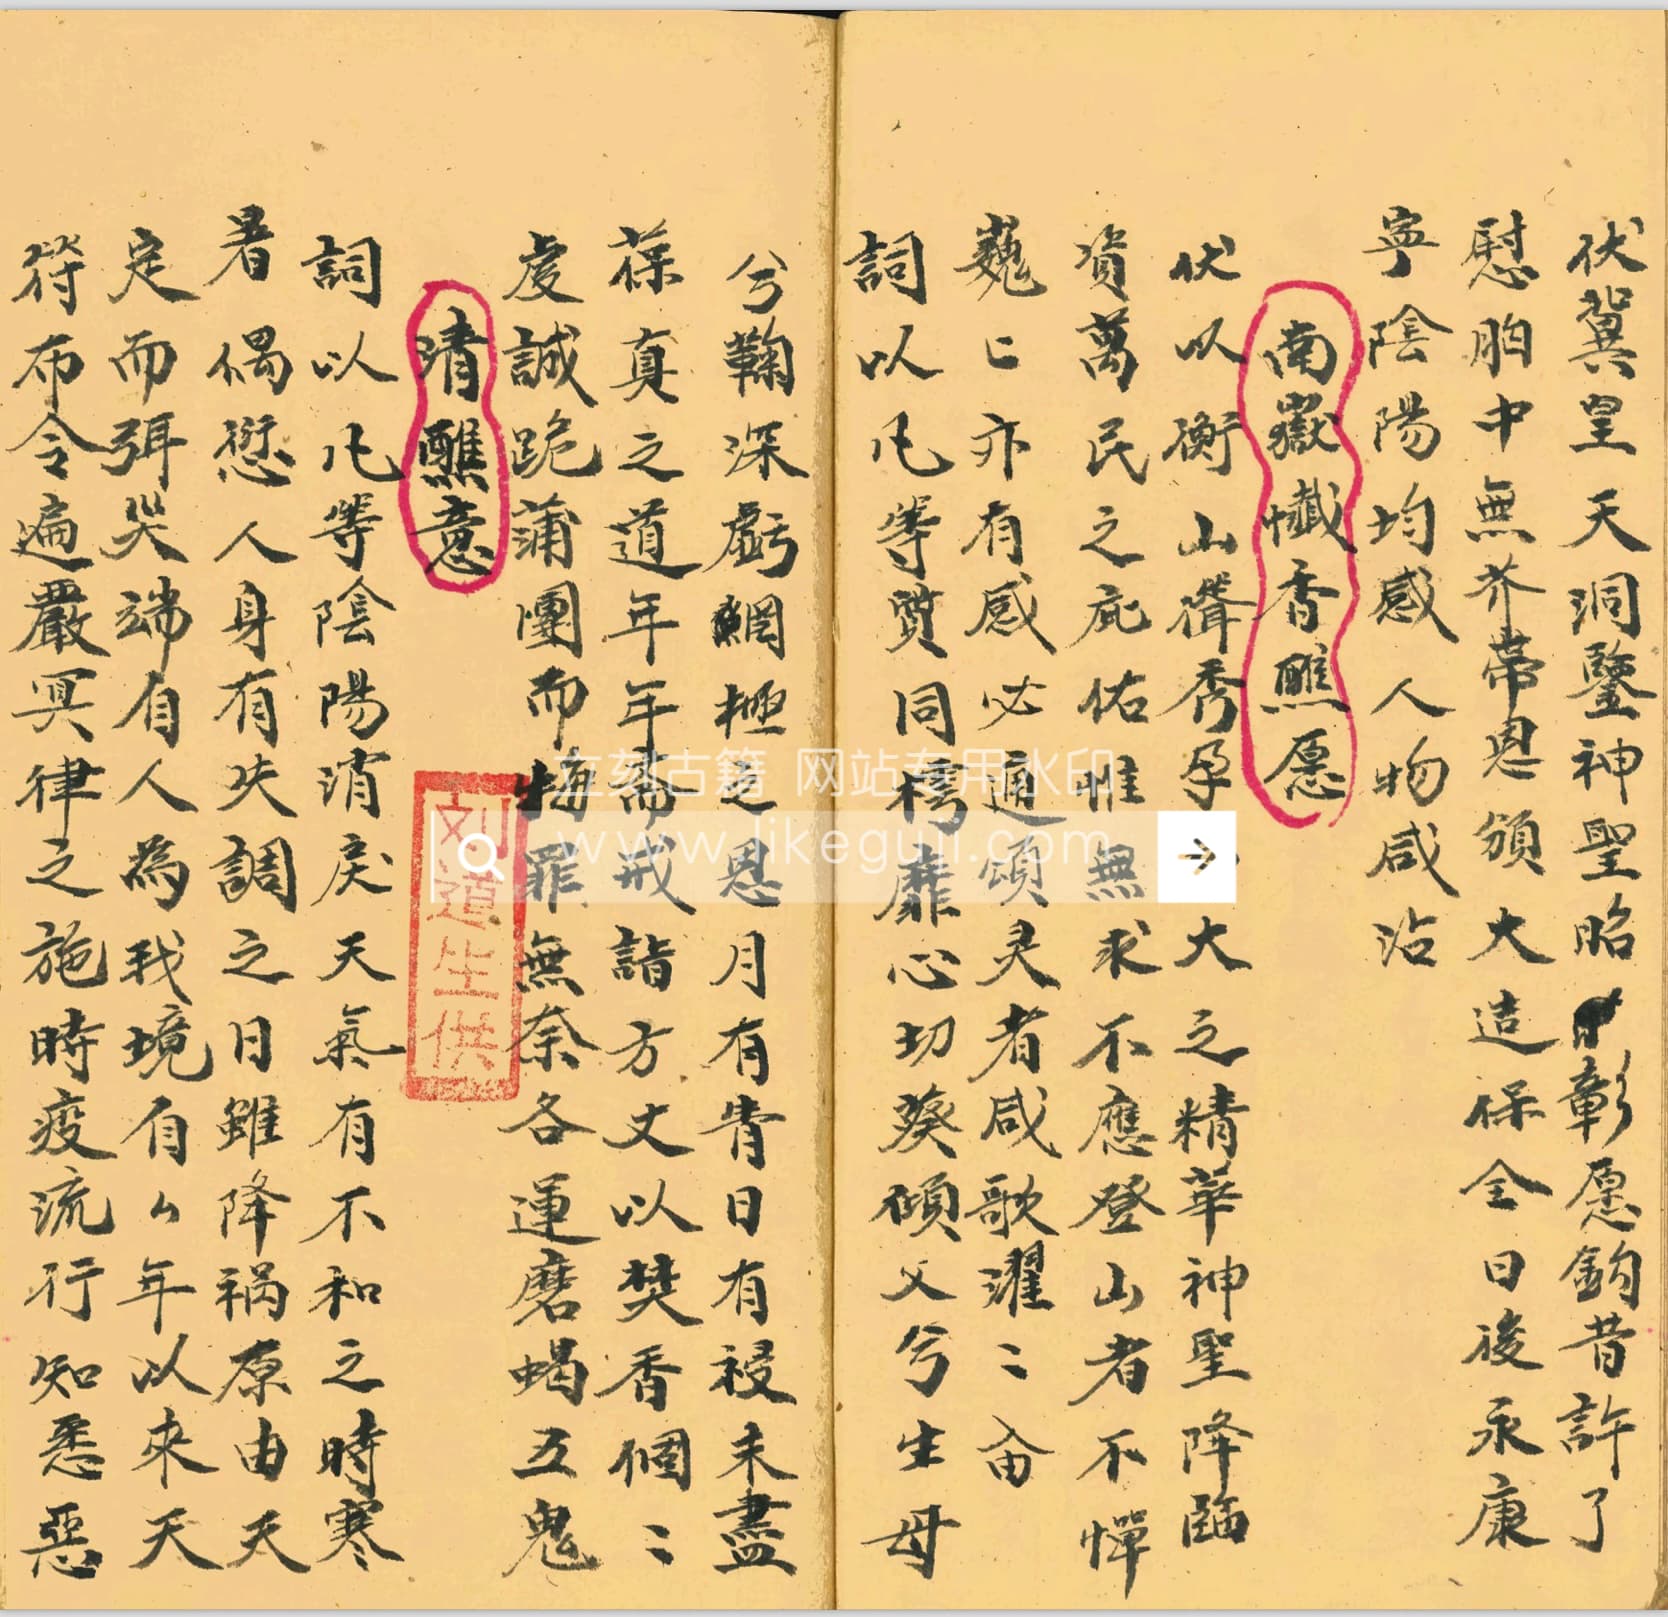 伏冀皇天洞鑒神聖昭彰愿鈎昔許了
慰胸中無芥蒂恩頒大造保全日後永康
寧陰陽均感人物咸沾
南嶽懺香醮愿
伏以衡山聳秀孕大之精華神聖降臨
資萬民之庇佑惟無求不不應登山者不憚
巍〻亦有感必通頌灵者咸歌濯〻
詞以凡等質同樗靡心切葵傾父兮生母
兮鞠深虧網極之恩月有眚日有祲未盡
葆真之道年年齋戒詣方丈以焚香個〻
虔誠跪蒲團而悔罪無奈各運磨蝎五鬼
清醮意
詞以凡等陰陽消戾天氣有不和之時寒
暑偶愆人身有失調之日雖降禍原由天
定而弭災端自有人為我境自〻年以來天
符布令遍嚴冥律之施時疫流行知悉惡
刘道生供
立刻古籍 网站专用水印
www.likeguji.com